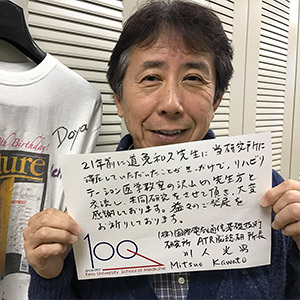 Birthday!
Doya
ture
21年前に道免和久先生に当研究所に
滞在していただいたことがきっかけで、リハビリ
テーション医学教室の沢山の先生方と
交流し、共同研究をさせて頂き、大変
感謝しております。益々のご発展を
お祈りしております。
(株)国際電気通信基礎技術
研究所 ATR脳総研所長
川人光男
Mitsuo Kawato
100
University School of Medicine